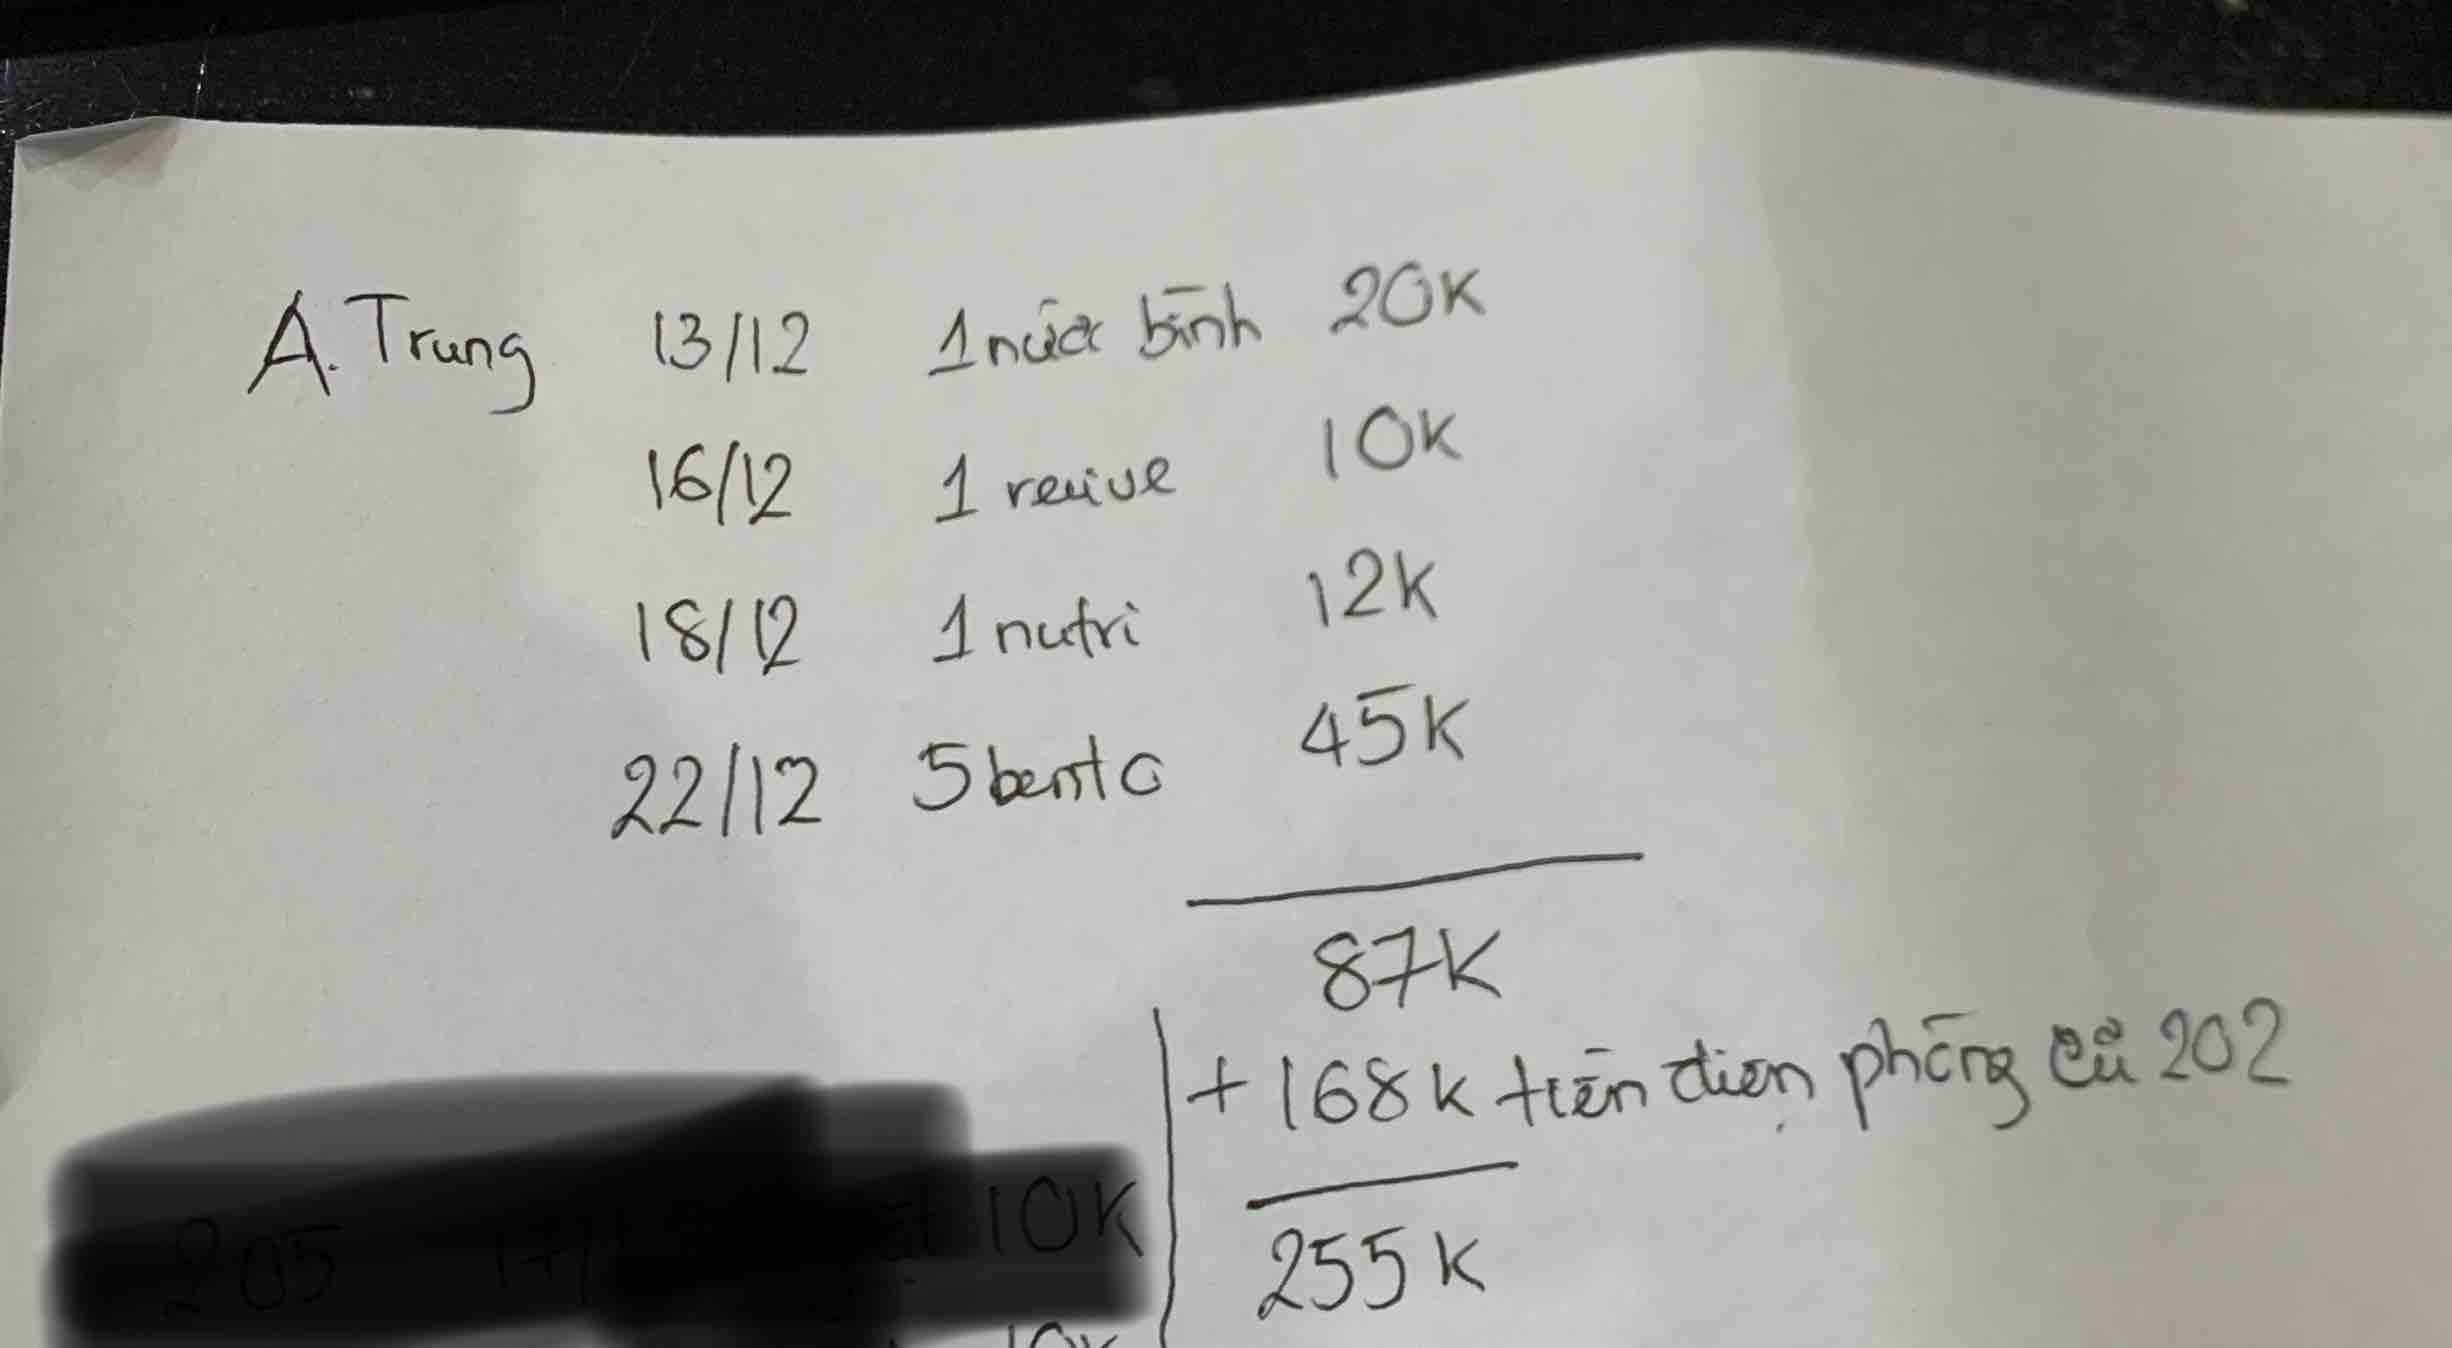 A. Trung 13/12 1 nước bình 20K
16/12 1 revive 10K
18/12 1 nutri 12K
22/12 5 bento 45K
87K
+ 168K tiền điện phòng cũ 202
255K
205 10K
10K